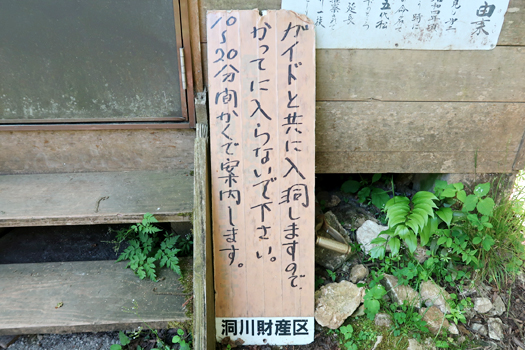 ガイドと共に入洞しますので、
かってに入らないで下さい。
10〜20分間かくで案内します。
洞川財産区
由来
五代松